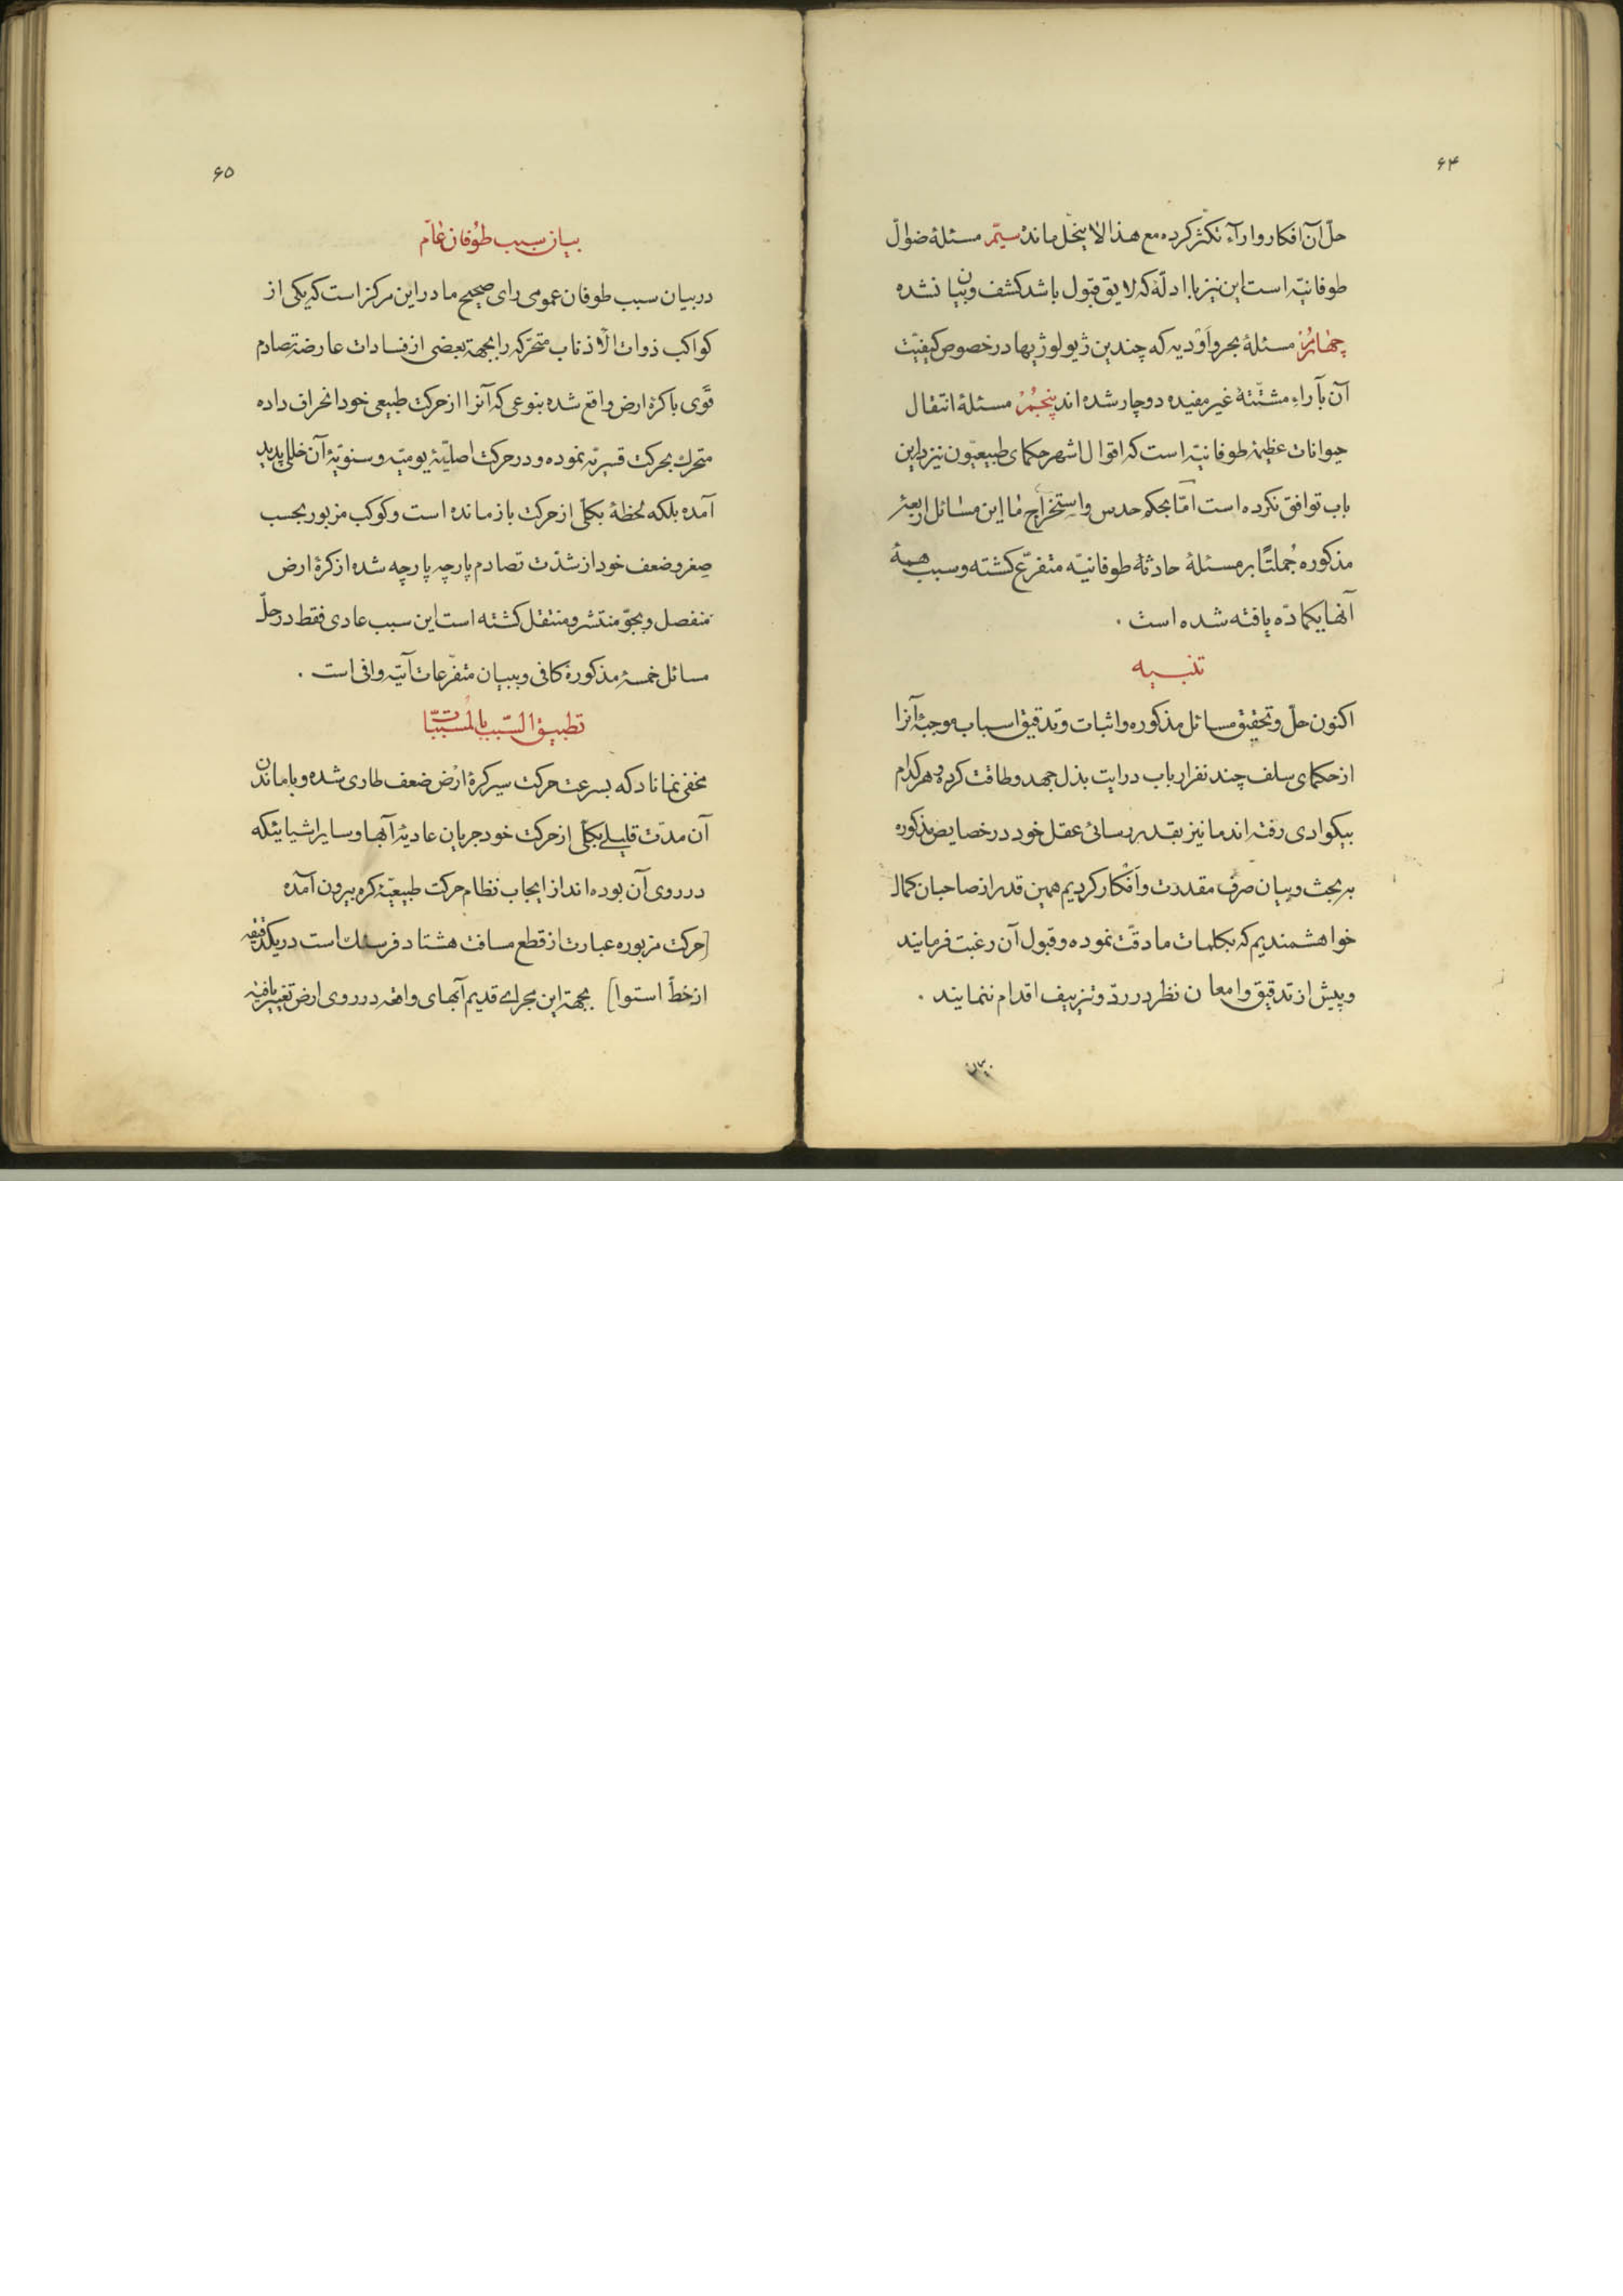 ۶۴
حلّ آن افکار و اراء تکثّر کرده مع هذا لا ینحلّ مانده سیّم مسئلهٔ ضوالّ
طوفانیّه است این نیز با ادلّهٔ که لایق قبول باشد کشف و بیان نشده
چهارم مسئلهٔ بحر و اودیه که چندین ژیولوژیها در خصوص کیفیّت
آن بآراء مشتّتهٔ غیر مفیده دوچار شده اند پنجم مسئلهٔ انتقال
حیوانات عظیمهٔ طوفانیّه است که اقوال اشهر حکمای طبیعیّون نیز در این
باب توافق نکرده است امّا بحکم حدس و استخراج ما این مسائل اربعهٔ
مذکوره جُملتًا بر مسئلهٔ حادثهٔ طوفانیّه متفرّع کشته و سبب همهٔ
آنها یکمادّه یافته شده است .
تنبیه
اکنون حلّ و تحقیق مسائل مذکوره و اثبات و تدقیق اسباب موجبهٔ آنرا
از حکمای سلف چند نفر ارباب درایت بذل جهد و طاقت کرده و هر کدام
بیکوادی رفته اند ما نیز بقدر رسائی عقل خود در خصایص مذکوره
به بحث و بیان صرف مقدرت و افکار کردیم همین قدر از صاحبان کمال
خواهشمندیم که بکلمات ما دقّت نموده و قبول آن رغبت فرمایند
و پیش از تدقیق و امعان نظر در ردّ و تزییف اقدام ننمایند .
۶۵
بیان سبب طوفان عامّ
در بیان سبب طوفان عمومی رای صحیح ما در این مرکز است که یکی از
کواکب ذوات الاذناب متحرّکه را بجهة بعضی از فسادات عارضه تصادم
قوّی با کرهٔ ارض واقع شده بنوعی که آنرا از حرکت طبیعی خود انحراف داده
متحرك بحرکت قسریّه نموده و در حرکت اصلیّهٔ یومیّه و سنویّهٔ آن خللی پدید
آمده بلکه لحظهٔ بکلّی از حرکت باز مانده است و کوکب مزبور بحسب
صِغر و ضعف خود از شدّت تصادم پارچه پارچه شده از کرهٔ ارض
منفصل و بجوّ منتشر و منتقل کشته است این سبب عادی فقط در حلّ
مسائل خمسهٔ مذکوره کافی و ببیان متفرّعات آتیه وافی است .
تطبیق السّبب بالمُسبّبات
مخفی نماناد که بسرعت حرکت سیر کرهٔ ارض ضعف طاری شده و با ماندن
آن مدّت قلیلے بکلّی از حرکت خود جریان عادیهٔ آبها و سایر اشیائیکه
در روی آن بوده اند از ایجاب نظام حرکت طبیعیّهٔ کره بیرون آمده
[حرکت مزبوره عبارت از قطع مسافت هشتاد فرسنك است در یکدقیقه
از خطّ استوا] بجهة این مجرای قدیم آبهای واقعه در روی ارض تغییر یافته